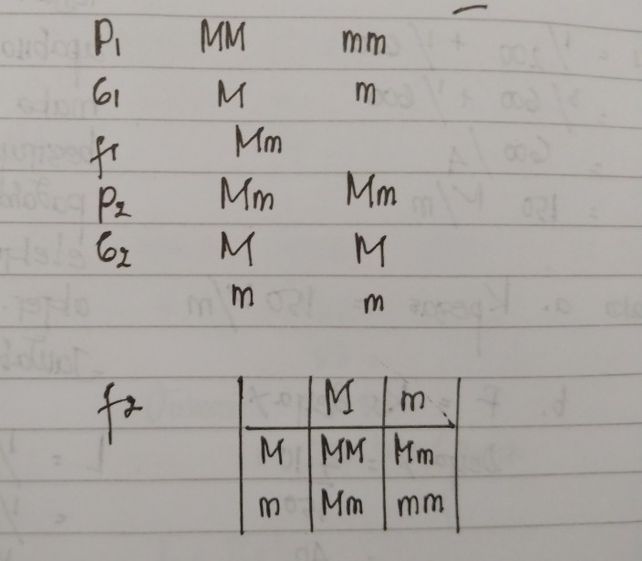 P1 MM mm
G1 M m
f1 Mm
P2 Mm Mm
G2 M M
m m
f2 M m
M MM Mm
m Mm mm